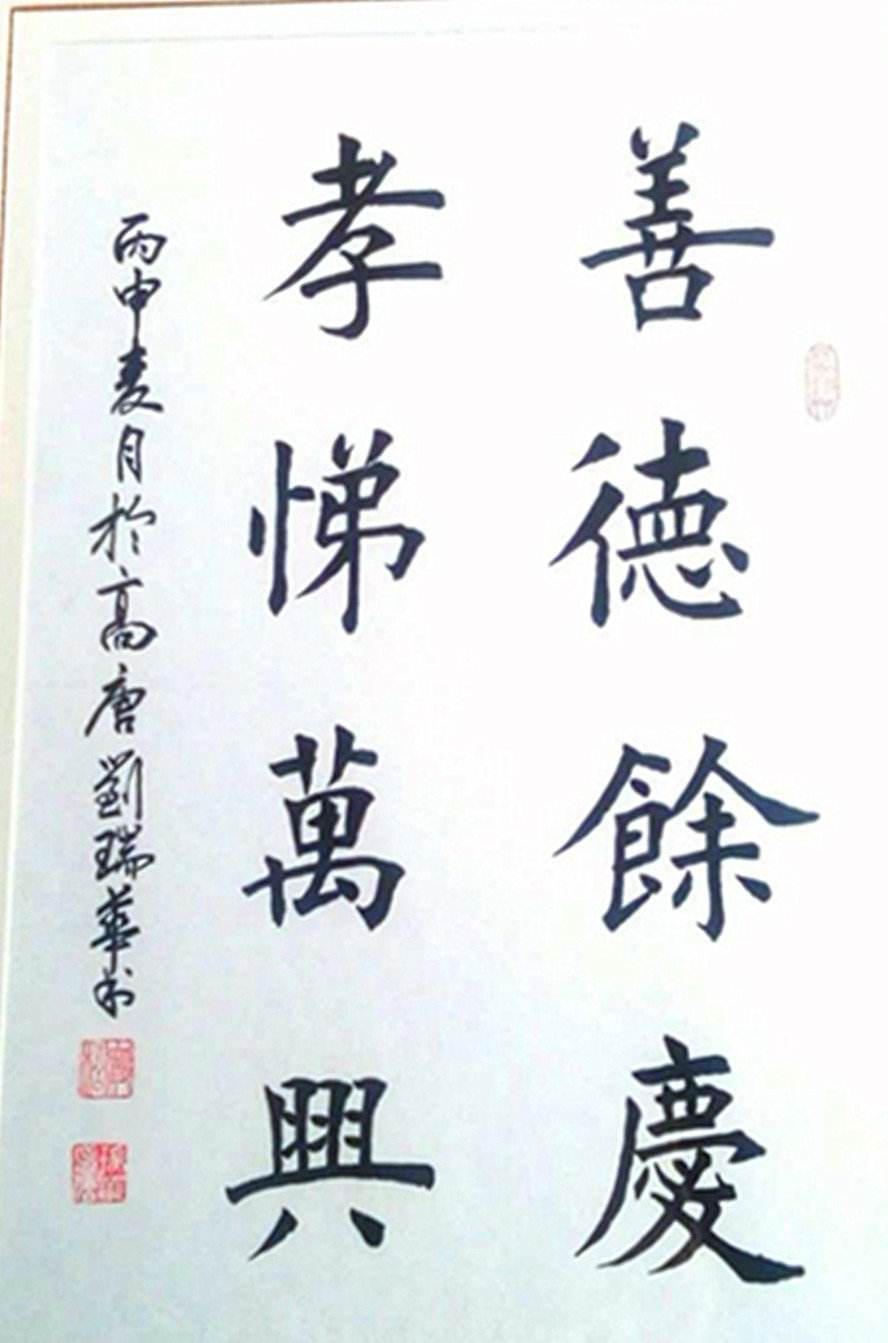 善德餘慶
孝悌萬興
丙申夏月於高唐劉瑞華書